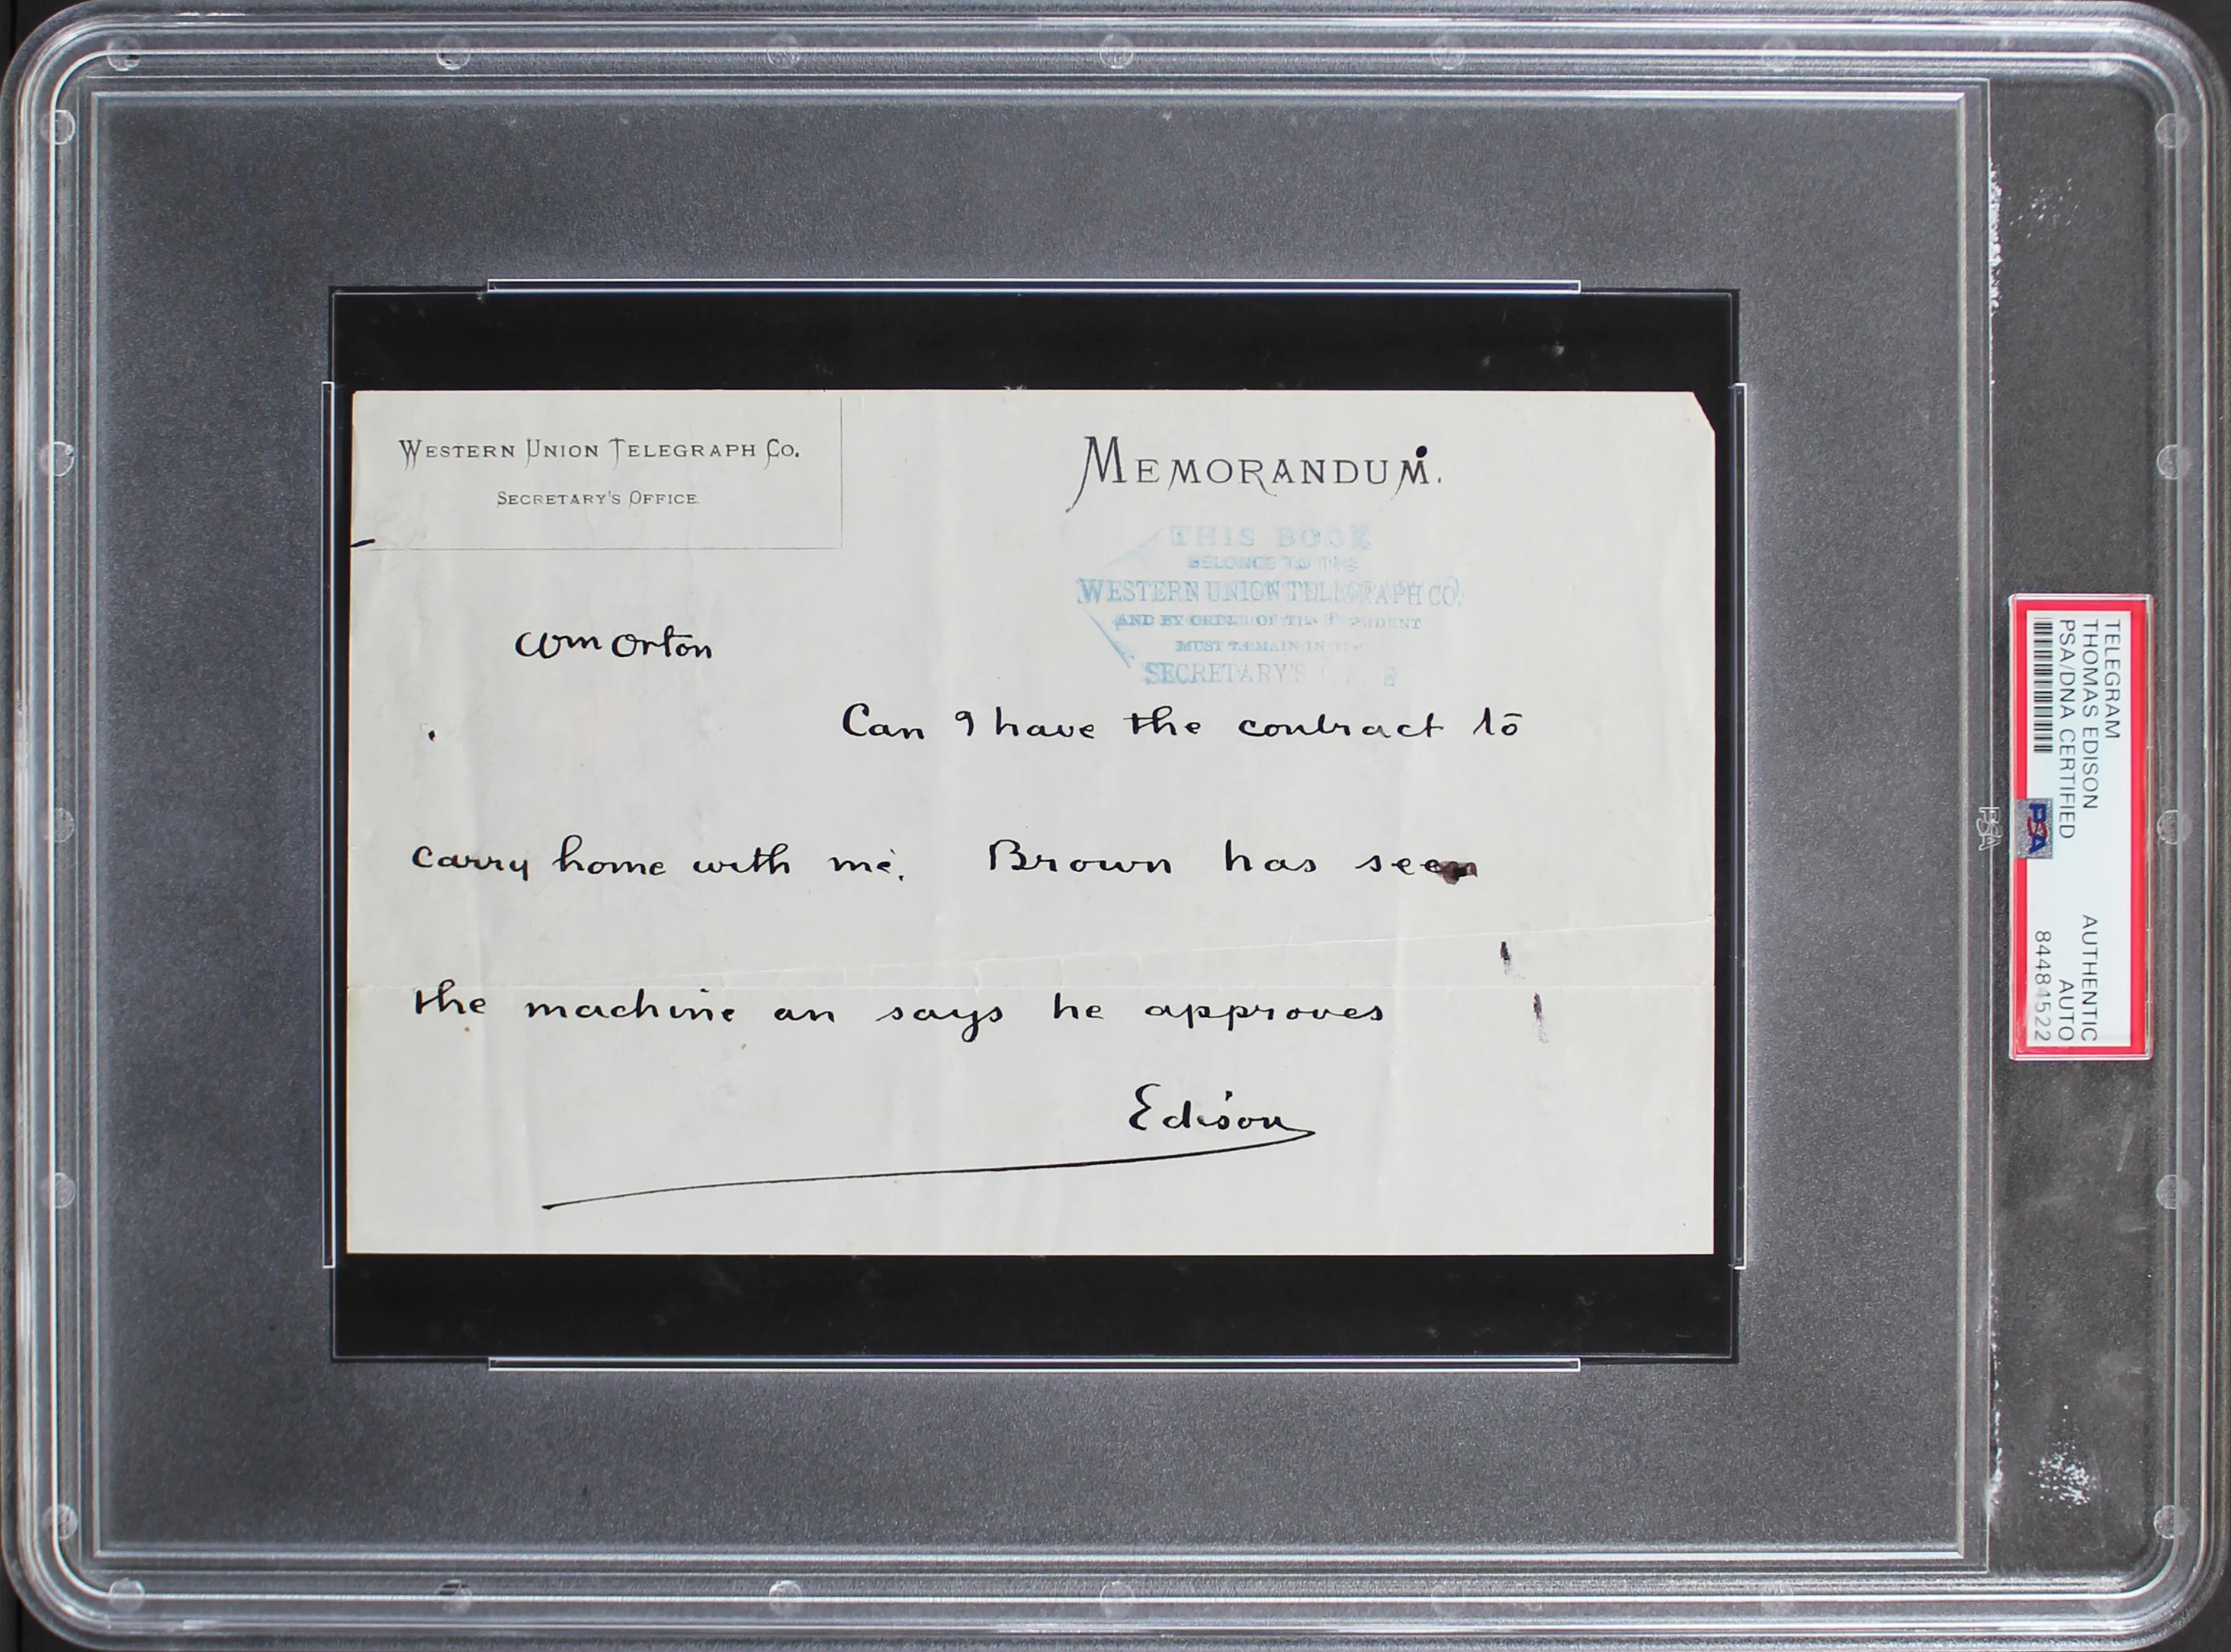 WESTERN UNION TELEGRAPH CO.
SECRETARY'S OFFICE
MEMORANDUM.
THIS BOOK
BELONGS TO THE
WESTERN UNION TELEGRAPH CO.
AND BY ORDER OF THE PRESIDENT
MUST REMAIN IN
SECRETARY'S
Wm Orton
Can I have the contract to
carry home with me. Brown has seen
the machine an says he approves
Edison
TELEGRAM
THOMAS EDISON
PSA/DNA CERTIFIED
AUTHENTIC
AUTO
84484522
PSA
PSA